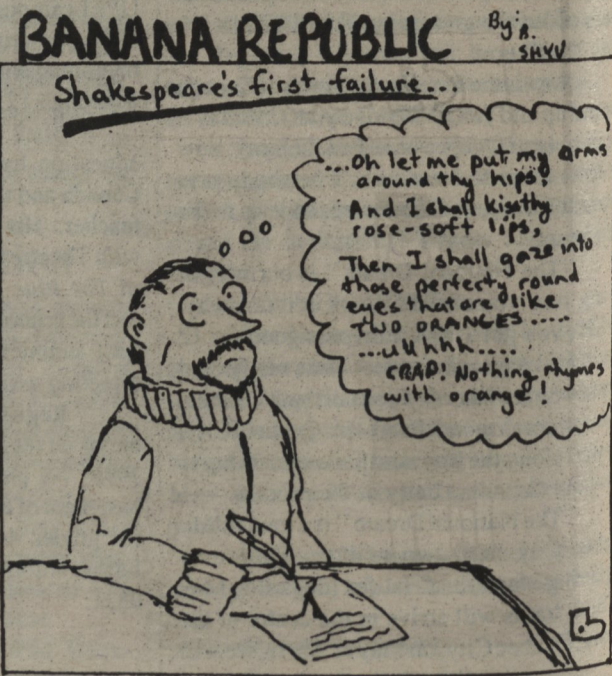 BANANA REPUBLIC
By: R. SHYU
Shakespeare's first failure...
...Oh let me put my arms
around thy hips,
And I shall kiss thy
rose-soft lips,
Then I shall gaze into
those perfectly round
eyes that are like
TWO ORANGES.....
...uhhhh....
CRAP! Nothing rhymes
with orange!